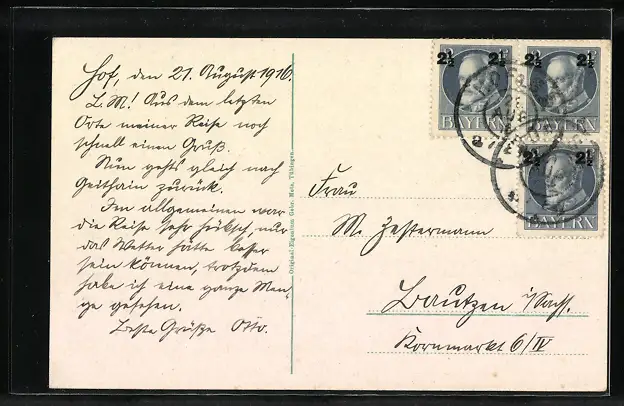 Hof, den 21. August 1916.
L. M! Aus dem letzten
Orte meiner Reise noch
schnell einen Gruß.
Nun gehts gleich nach
Geithain zurück.
Im allgemeinen war
die Reise sehr hübsch, nur
das Wetter hätte besser
sein können, trotzdem
habe ich eine ganze Men-
ge gesehen.
Beste Grüße Otto.
Original-Eigentum Gebr. Metz, Tübingen
2½ 2½
BAYERN
2½
BAYERN
2½ 2½
BAYERN
Frau
M. Zestermann
Bautzen i/Sachs.
Kornmarkt 6/IV